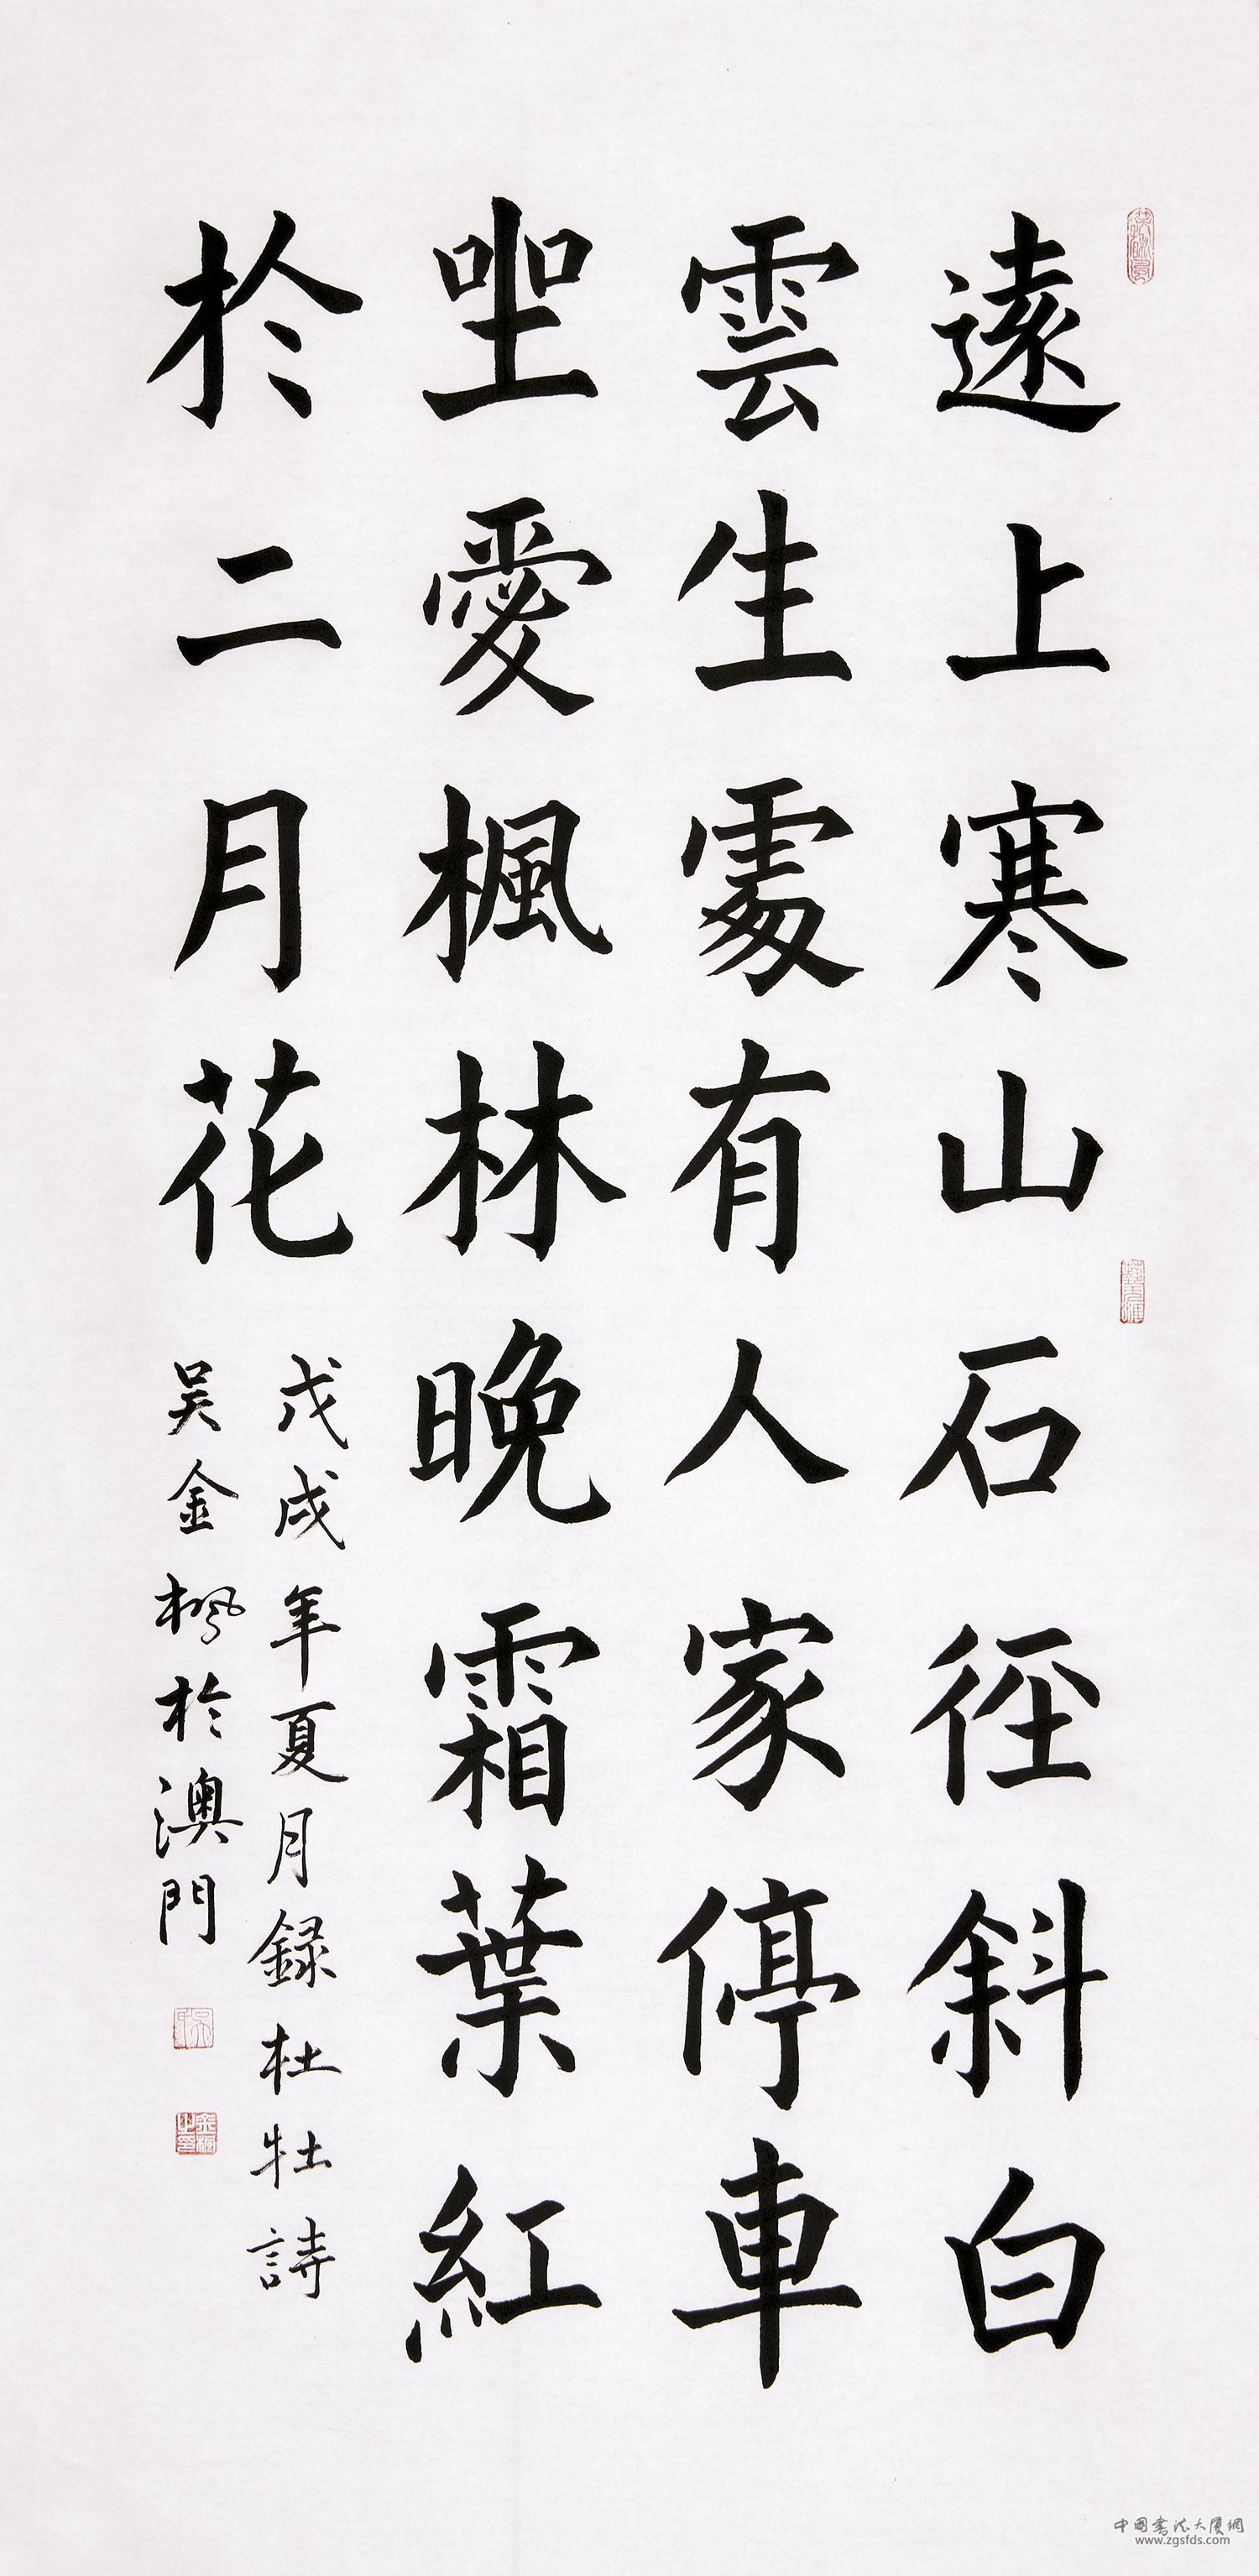 遠上寒山石徑斜白
雲生處有人家停車
坐愛楓林晚霜葉紅
於二月花
戊戌年夏月録杜牡詩
吴金楓於澳門
中国書法大厦網
www.zgsfds.com